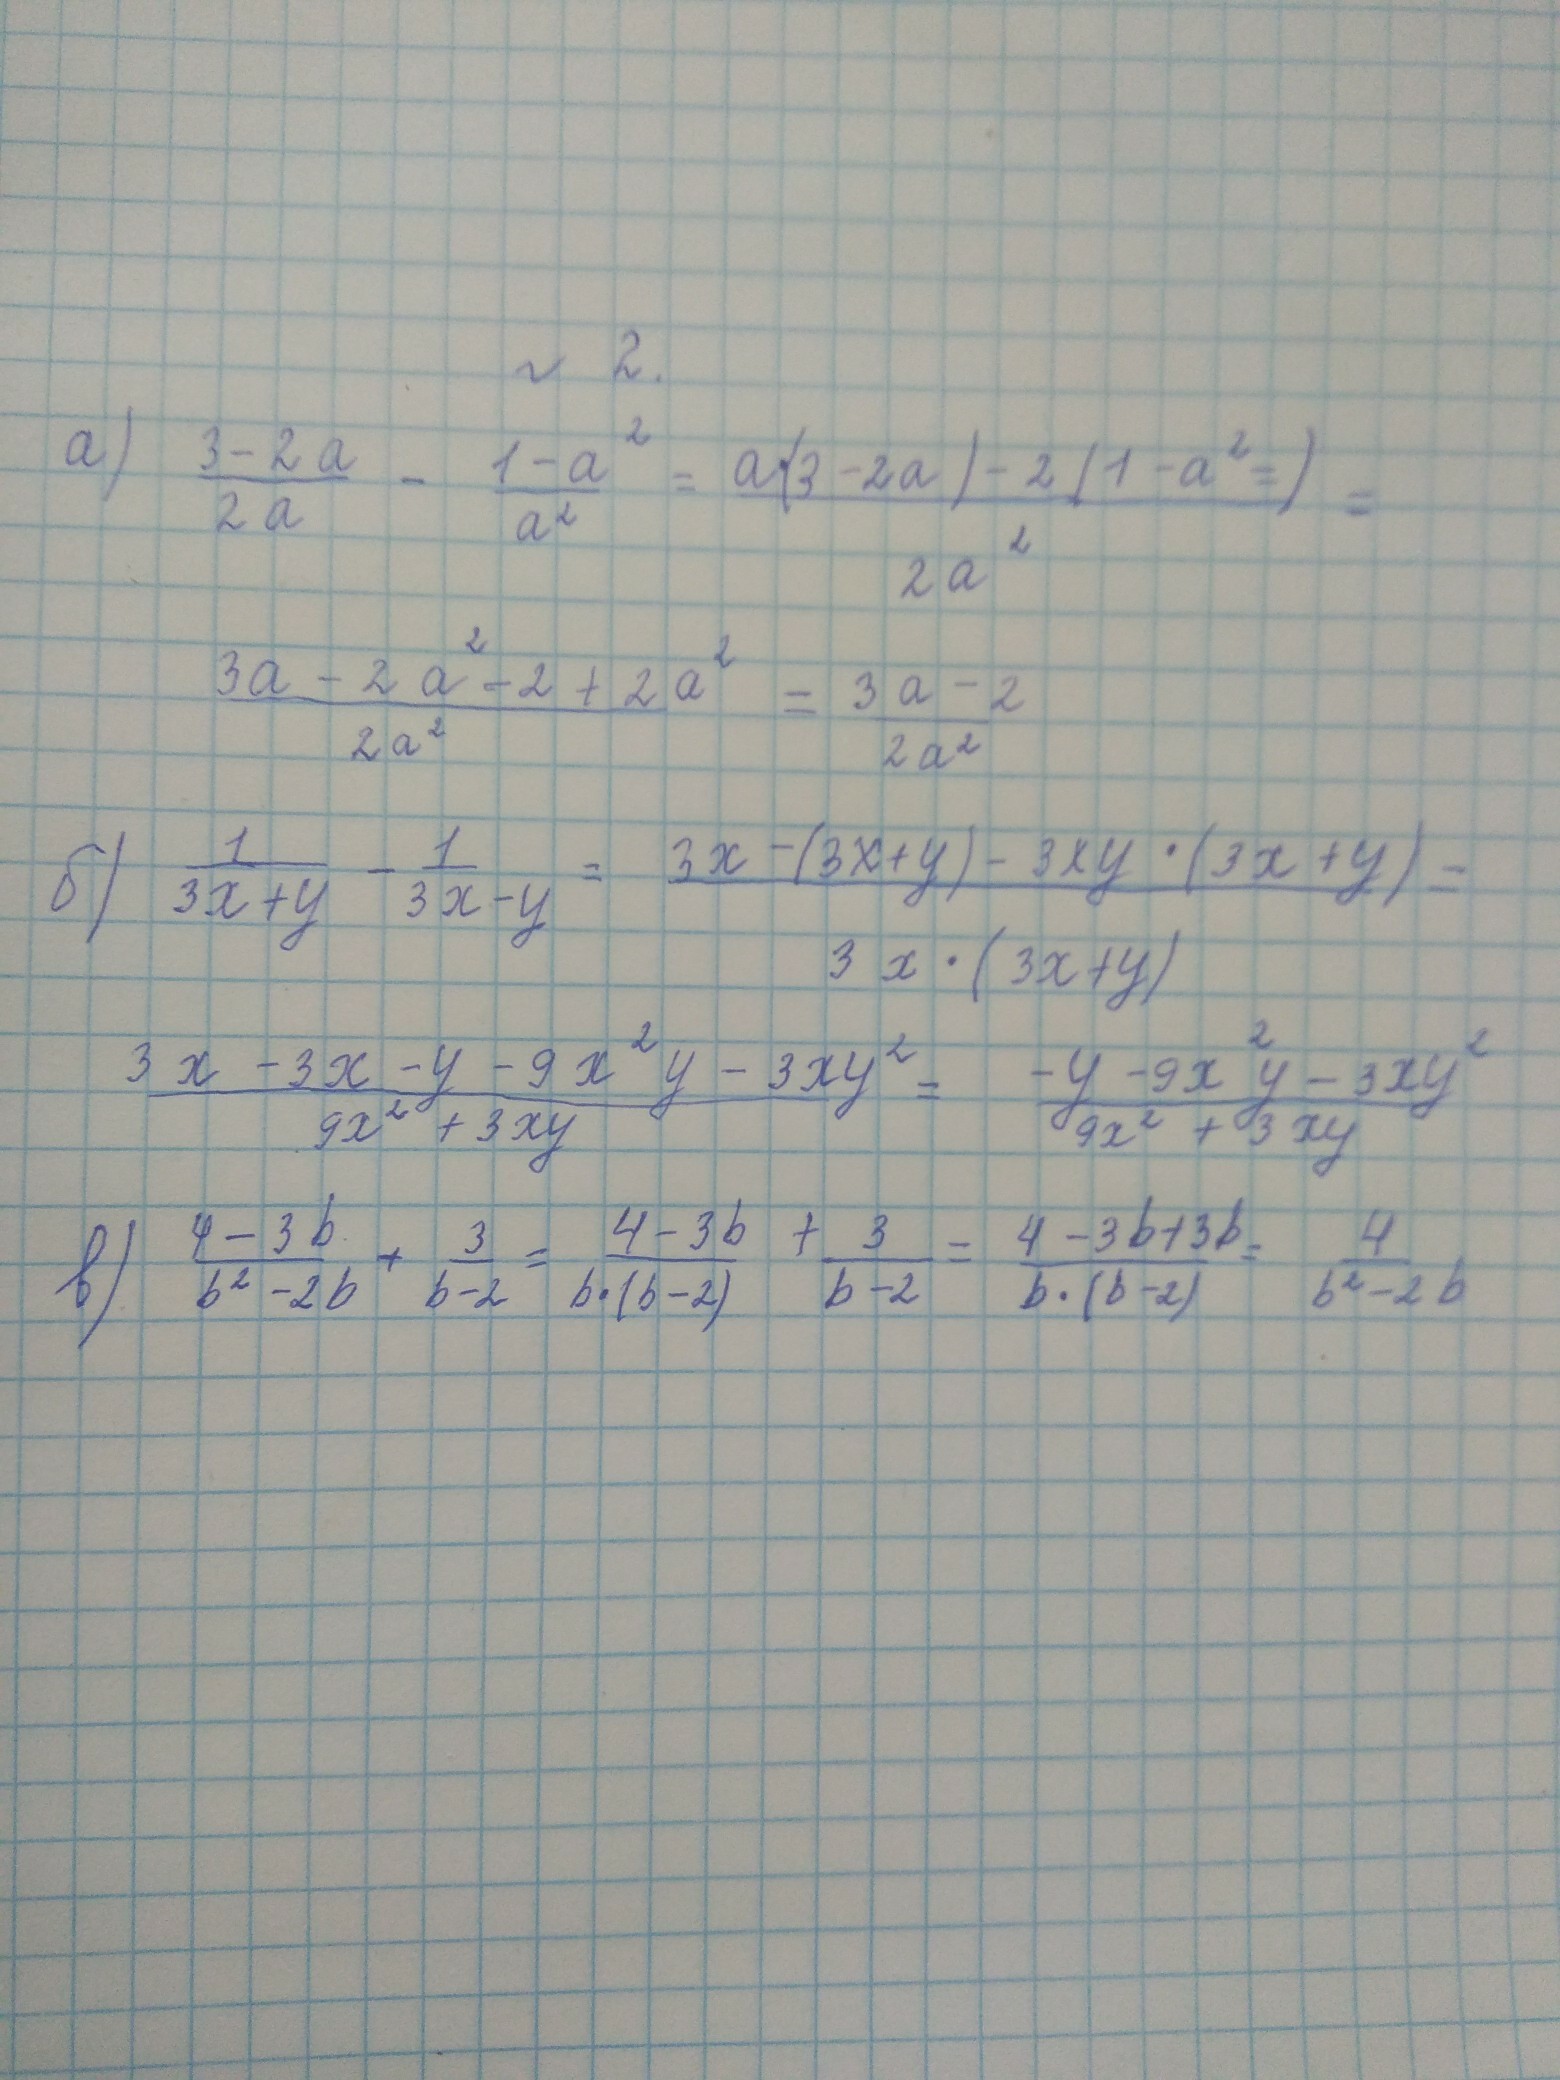 № 2.
а) (3-2a)/(2a) - (1-a²)/(a²) = (a·(3-2a)-2(1-a²=))/(2a²) =
(3a-2a²-2+2a²)/(2a²) = (3a-2)/(2a²)
б) 1/(3x+y) - 1/(3x-y) = (3x-(3x+y)-3xy·(3x+y))/(3x·(3x+y)) =
(3x-3x-y-9x²y-3xy²)/(9x²+3xy) = (-y-9x²y-3xy²)/(9x²+3xy)
в) (4-3b)/(b²-2b) + 3/(b-2) = (4-3b)/(b·(b-2)) + 3/(b-2) = (4-3b+3b)/(b·(b-2)) = 4/(b²-2b)